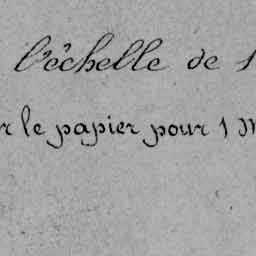 l'échelle de 1
r le papier pour 1 m